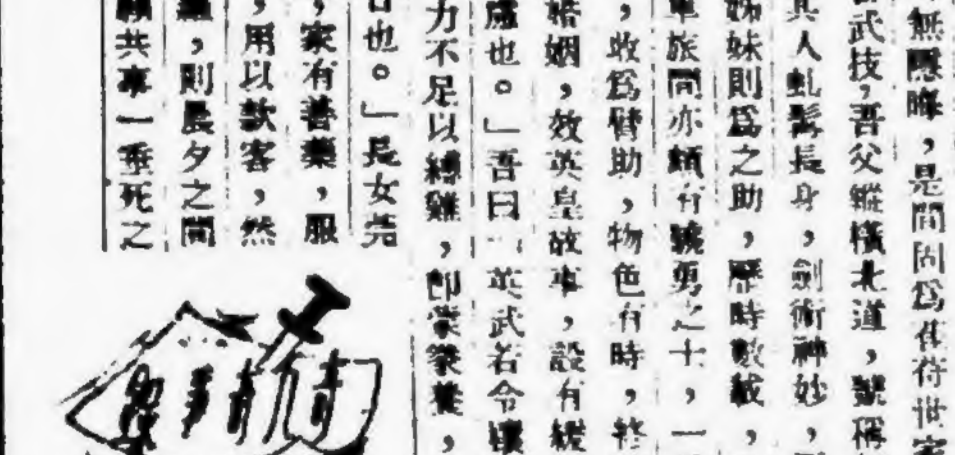 無隱曄，是間固為萑苻世家
武技，吾父縱橫北道，號稱
其人虬髯長身，劍術神妙，
姊妹則為之助，歷時數載，
軍旅間亦頗有驍勇之士，一
，收爲臂助，物色有時，終
婚姻，效英皇故事，設有緩
虞也。」吾曰：「英武若令孃
力不足以縛雞，即蒙豢養，
也。」長女莞
，家有善藥，服
，用以款客，然
，則晨夕之間
共事一垂死之